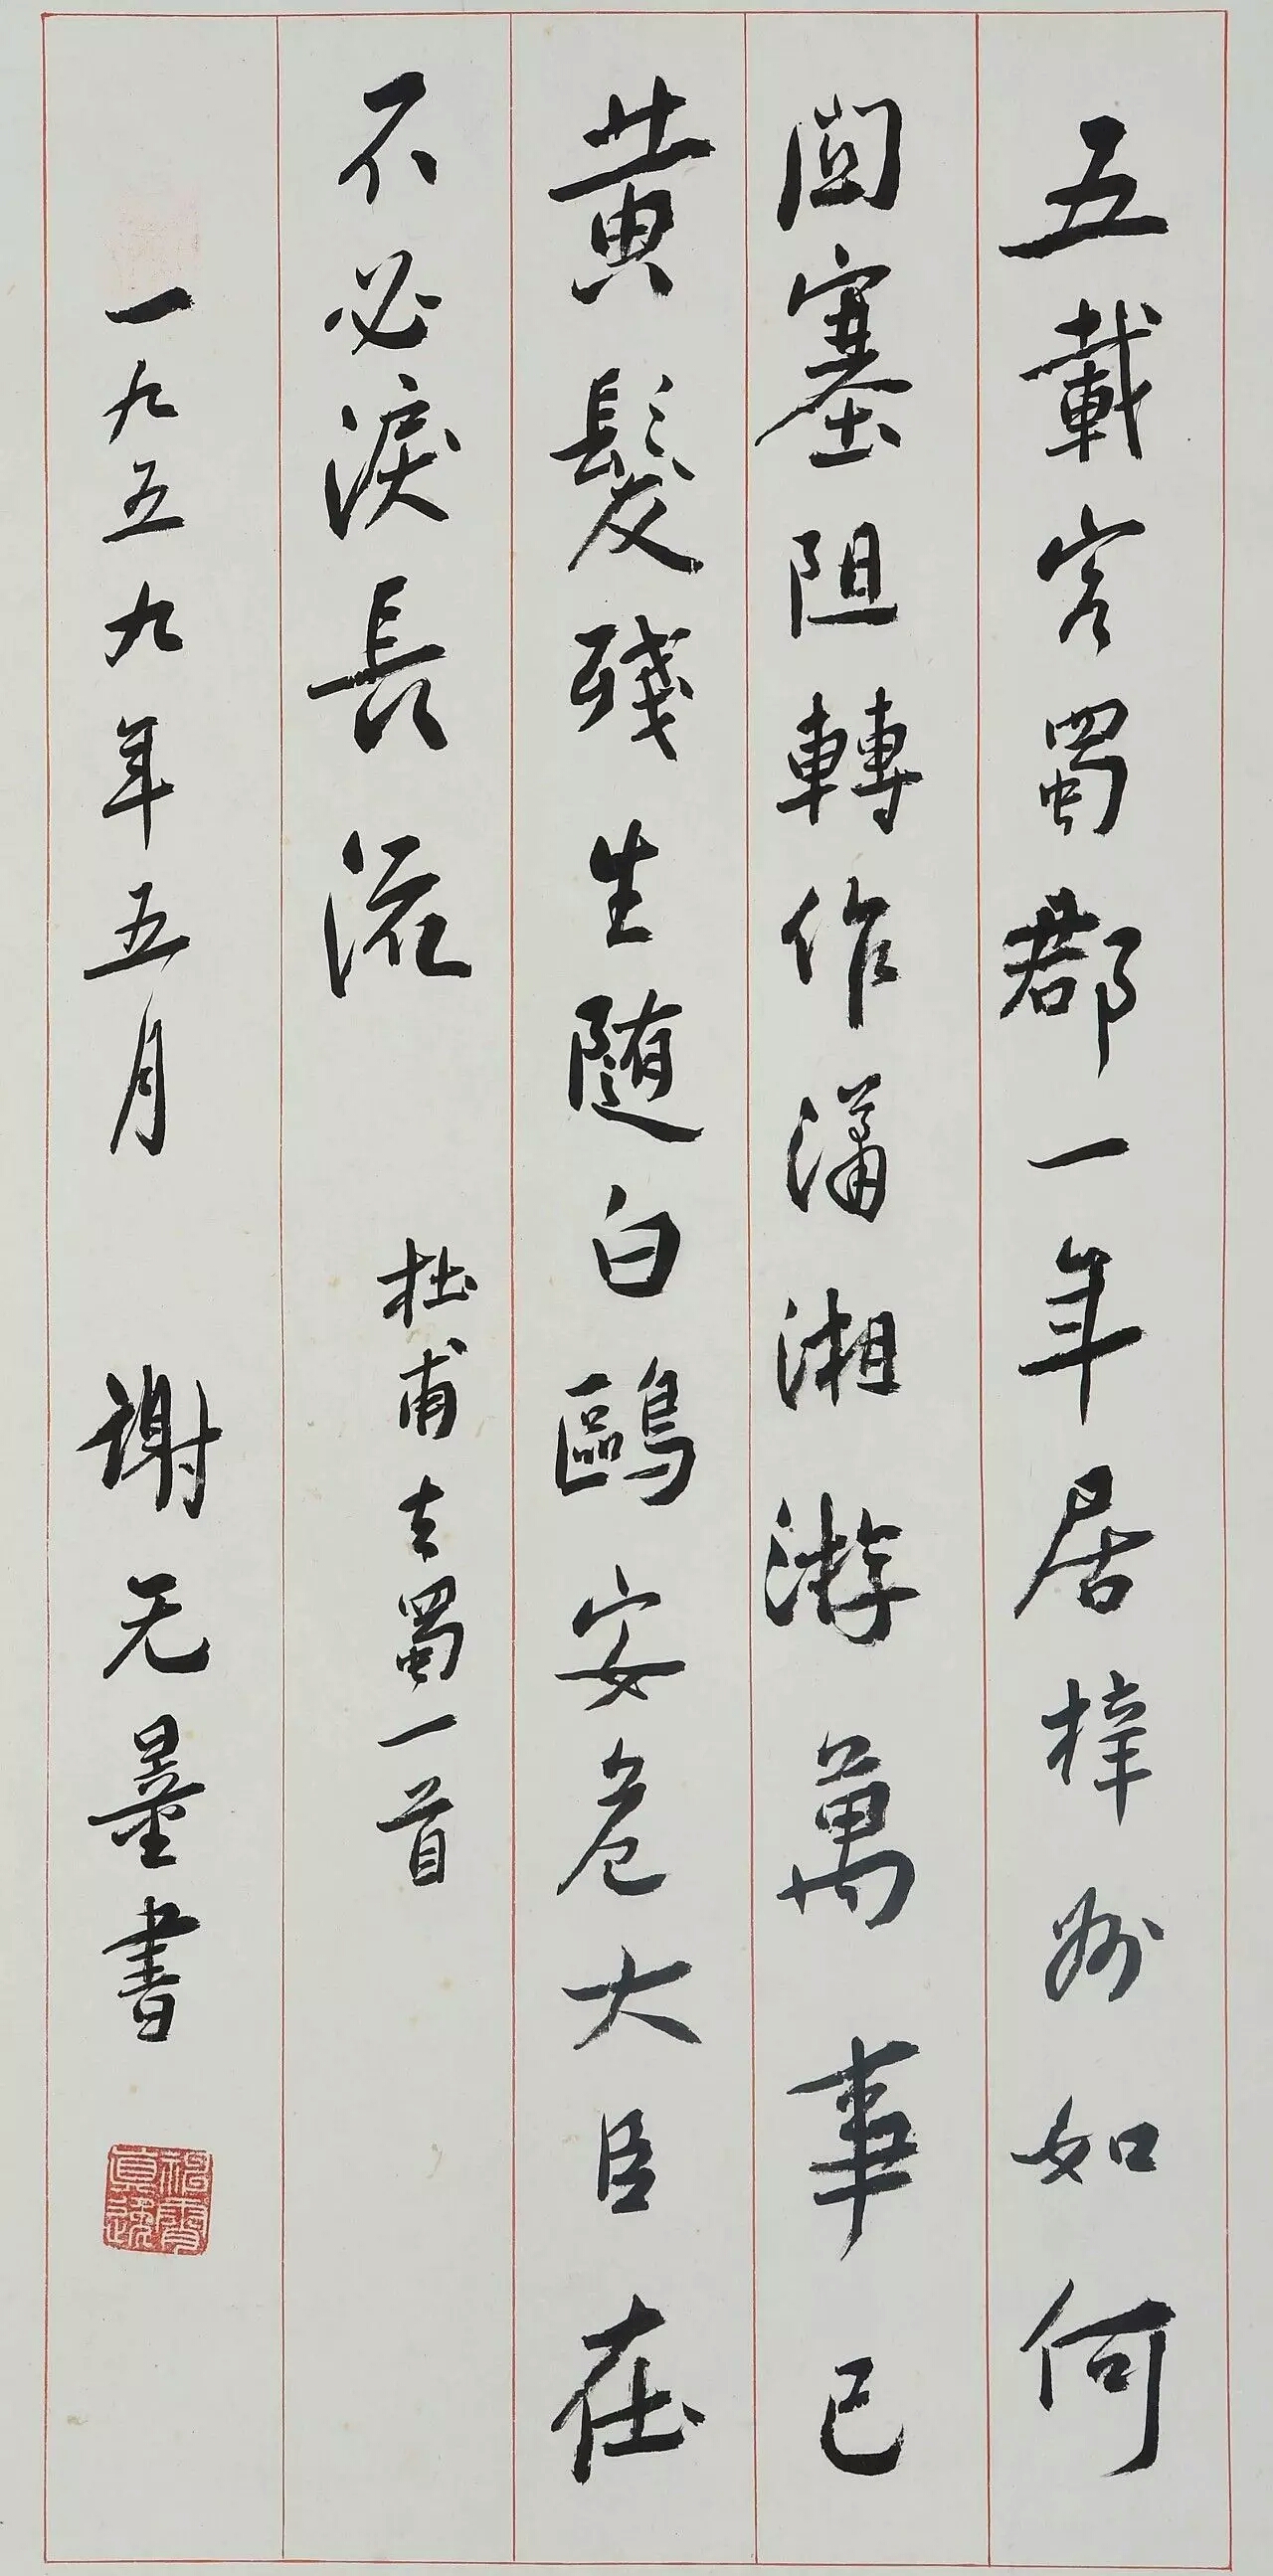 五載客蜀郡一年居梓州如何
関塞阻轉作瀟湘游萬事已
黄髮殘生随白鷗安危大臣在
不必淚長流
杜甫去蜀一首
一九五九年五月 谢无量書